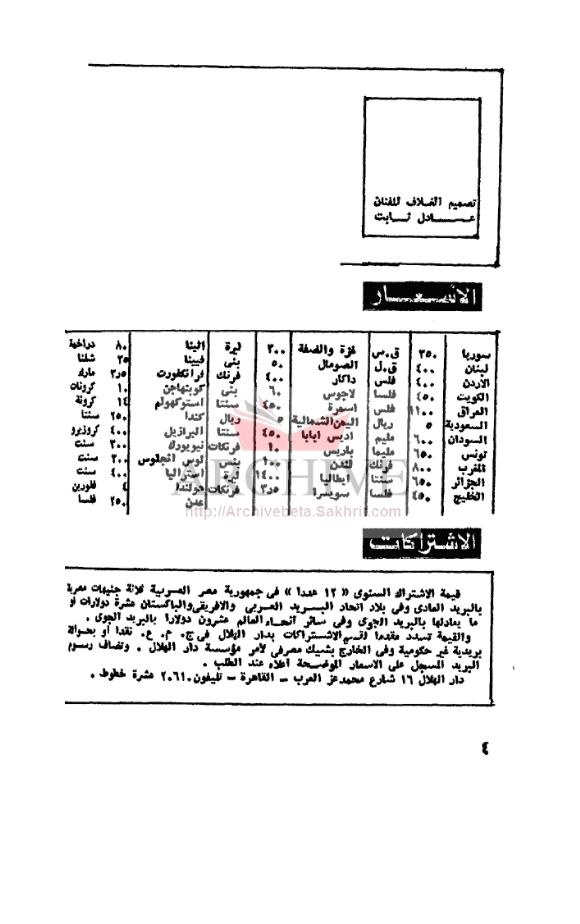 تصميم الغلاف للفنان
عـــادل ثـابت
الاسعار
سوريا ٣٥٠ ق.س غزة والضفة ٣٠٠ ليرة اثينا ٨٠ دراخمة
لبنان ٤٠٠ ق.ل الصومال ٥٠ بنى فيينا ٢٥ شلنا
الاردن ٤٠٠ فلس داكار ٤٠٠ فرنك فرانكفورت ٣٫٥ مارك
الكويت ٤٥٠ فلسا لاجوس ٦٠ بنى كوبنهاجن ١٠ كرونات
العراق ١١٠٠ فلس اسمرة ٤٥٠ سنتا استوكهولم ١٤ كرونة
السعودية ٥ ريال اليمن الشمالية ٥ ريال كندا ٢٥٠ سنتا
السودان ٦٠٠ مليم اديس ابابا ٤٥٠ سنتا البرازيل ٤٠٠ كروزيرو
تونس ٦٥٠ مليما باريس ١٠ فرنكات نيويورك ٣٠٠ سنت
المغرب ٨٠٠ فرنك لندن ١٠٠ بنس لوس انجلوس ٣٠٠ سنت
الجزائر ٦٥٠ سنتا ايطاليا ١٤٠٠ ليرة استراليا ٤٠٠ سنت
الخليج ٤٥٠ فلسا سويسرا ٣٫٥ فرنكات هولندا ٤ فلورين
عدن ٢٥٠ فلسا
ARCHIVE
http://Archivebeta.Sakhrit.com
الاشتراكات
قيمة الاشتراك السنوى « ١٢ عددا » فى جمهورية مصر العـربية ثلاثة جنيهات مصرية
بالبريد العادى وفى بلاد اتحاد البـــريد العـربى والافريقى والباكستان عشرة دولارات او
ما يعادلها بالبريد الجوى وفى سائر أنحـاء العالم عشرون دولارا بالبريد الجوى .
والقيمة تسدد مقدما لقسم الاشـــتراكات بدار الهلال فى ج. م. ع. نقدا أو بحوالة
بريدية غير حكومية وفى الخارج بشيك مصرفى لأمر مؤسسة دار الهلال . وتضاف رسـوم
البريد المسجل على الاسعار الموضـحة اعلاه عند الطلب .
دار الهلال ١٦ شارع محمد عز العرب – القاهرة – تليفون ٢٠٦١٠ عشرة خطوط .
٤